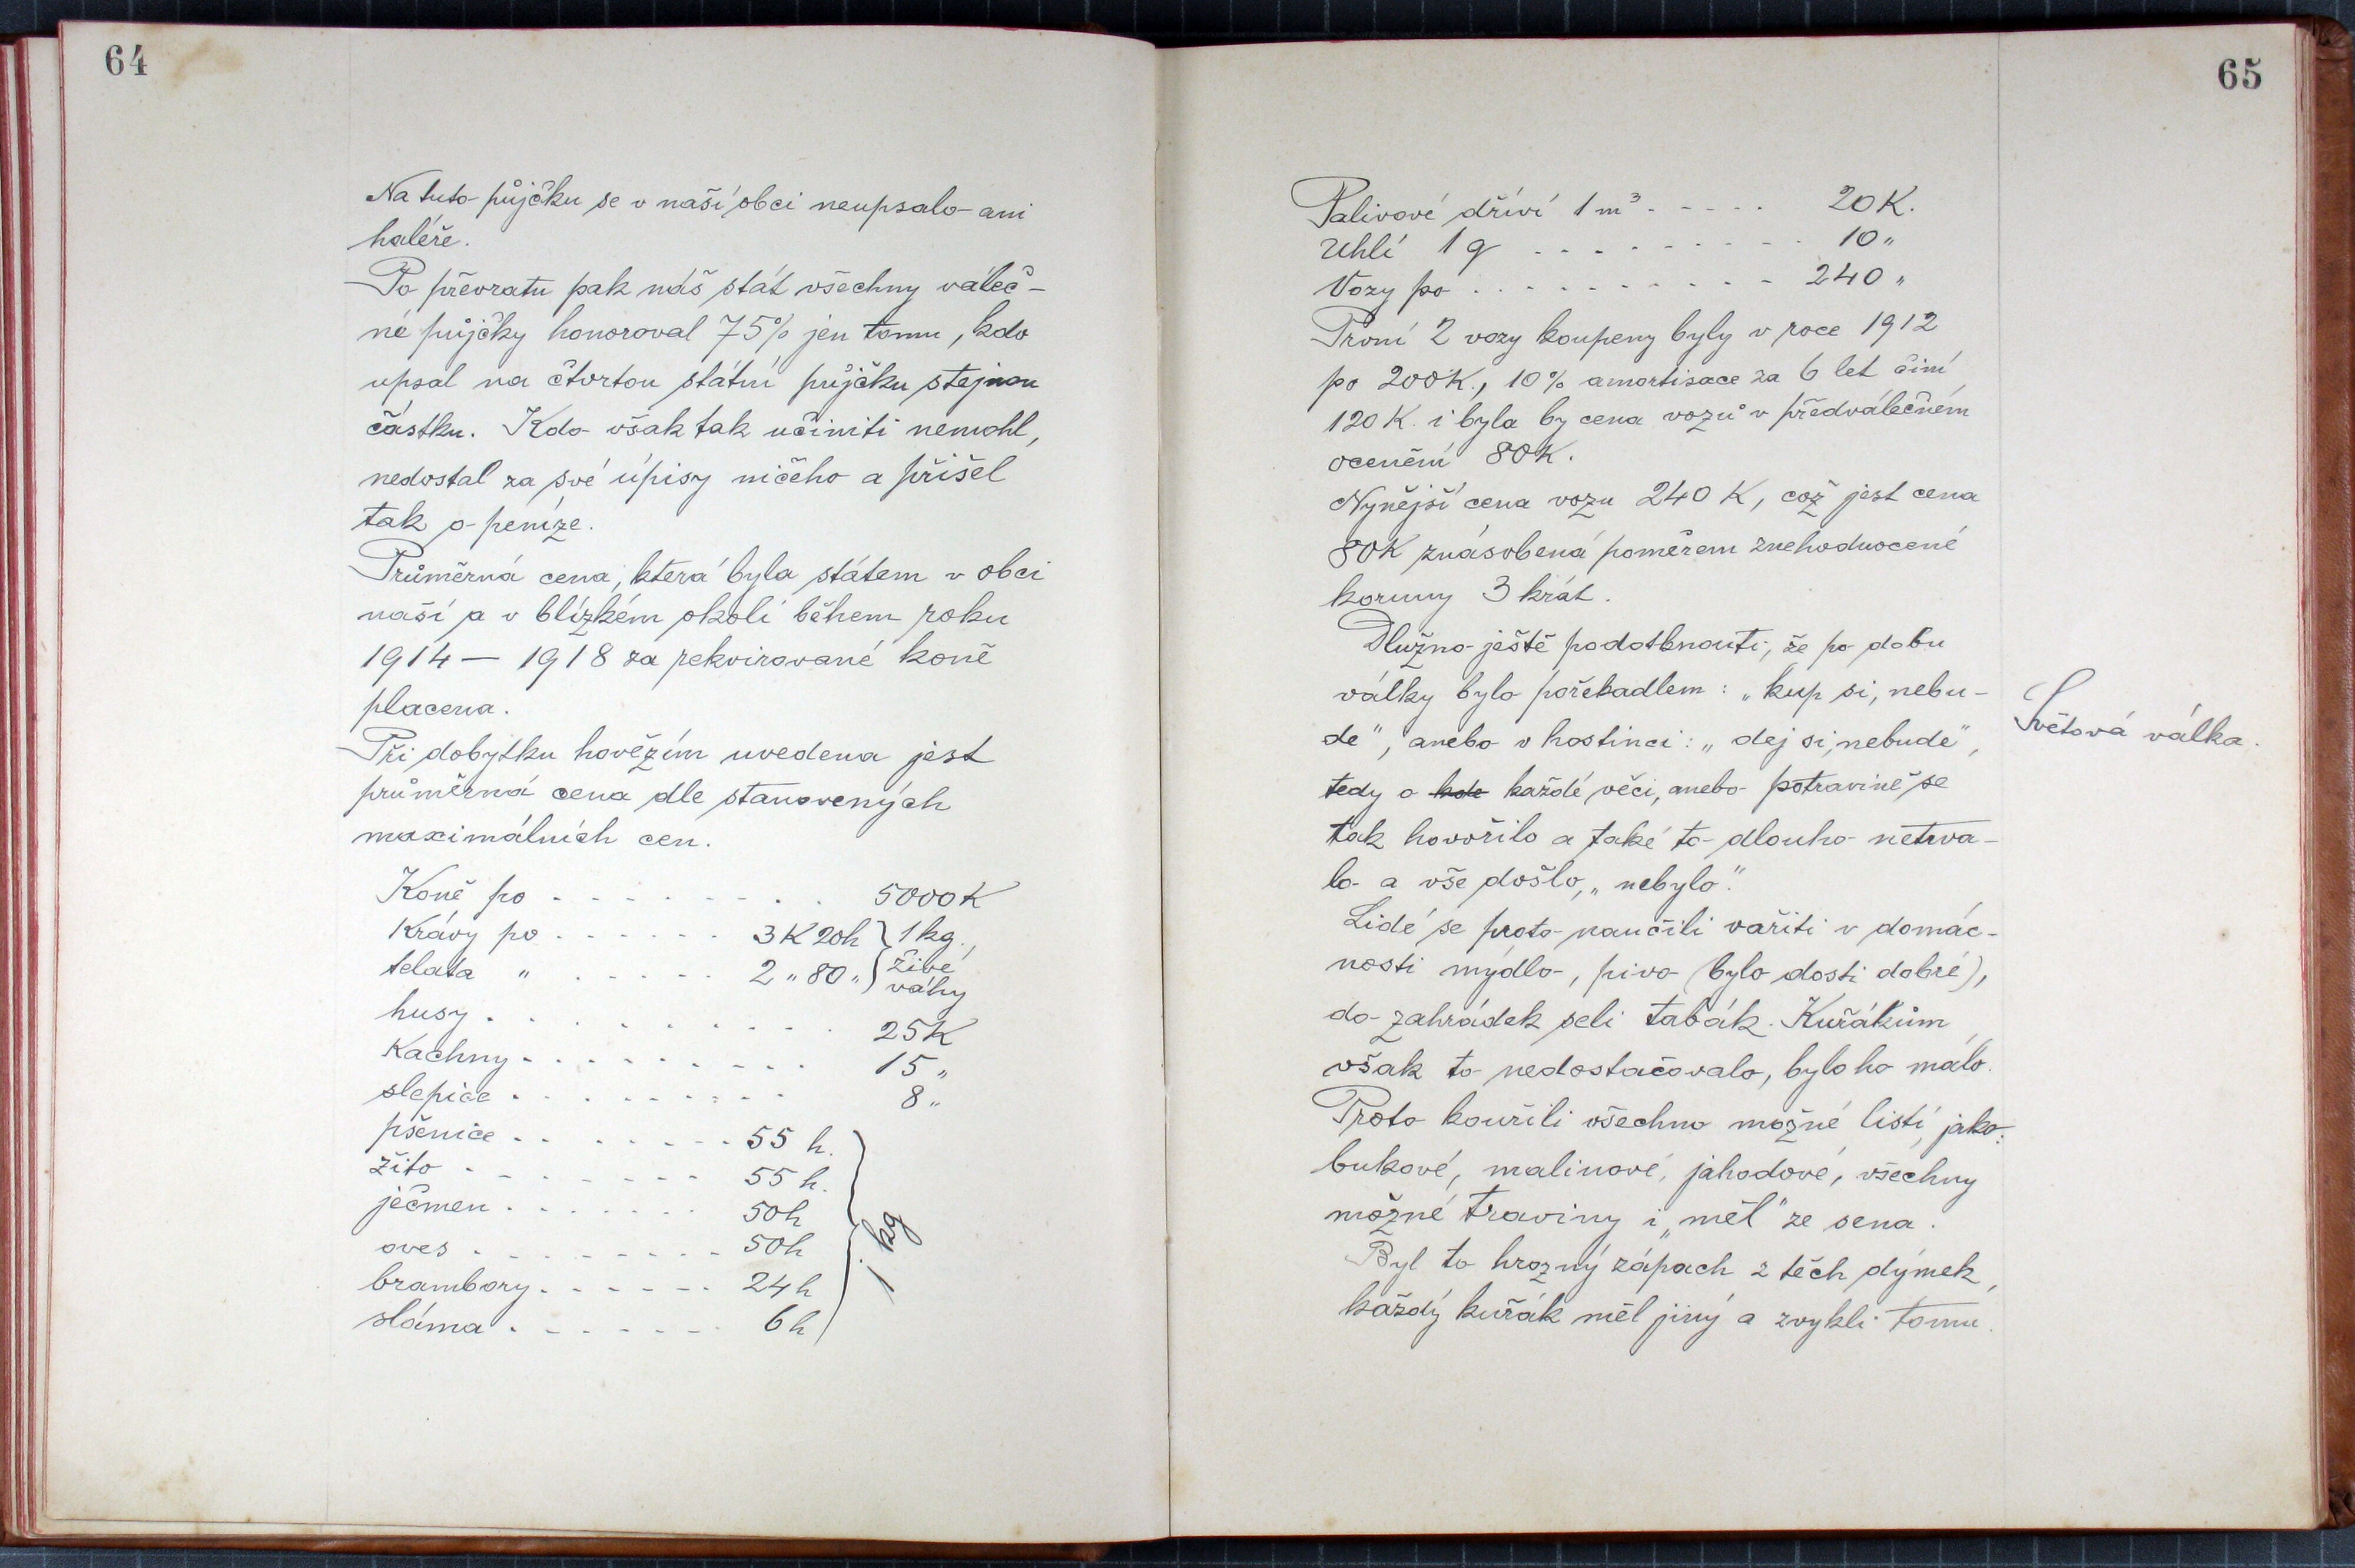 64
Na tuto půjčku se v naší obci neupsalo ani
haléře.
Po převratu pak náš stát všechny váleč-
né půjčky honoroval 75% jen tomu, kdo
upsal na čtvrtou státní půjčku stejnou
částku. Kdo však tak učiniti nemohl,
nedostal za své úpisy ničeho a přišel
tak o peníze.
Průměrná cena, která byla státem v obci
naší a v blízkém okolí během roku
1914 — 1918 za rekvirované koně
placena.
Při dobytku hovězím uvedena jest
průměrná cena dle stanovených
maximálních cen.
Koně po - - - - - - - - . 5000K
Krávy po - - - - - - 3K 20h } 1 kg.,
telata " . - - - - 2 " 80 " } živé
váhy
husy . - - - - - - - - 25K
Kachny - - - - - - - - - 15 "
slepice . - - - - - - - 8 "
pšenice . - - - - - - 55 h.
žito - - - - - - - - 55 h.
ječmen . - - - - - - 50h
oves . - - - - - - - 50h
brambory . - - - - - 24h
sláma . - - - - - - 6h
1 kg
65
Palivové dříví 1 m³ . - - - . 20K.
Uhlí 1 q - - - - - - - - 10 "
Vozy po . - - - - - - - - 240 "
První 2 vozy koupeny byly v roce 1912
po 200K., 10% amortisace za 6 let činí
120K. i byla by cena vozů v předválečném
ocenění 80K.
Nynější cena vozu 240 K, což jest cena
80K znásobená poměrem znehodnocené
koruny 3 krát.
Dlužno ještě podotknouti, že po dobu
války bylo pořekadlem: „kup si, nebu-
de", anebo v hostinci: „dej si, nebude",
Světová válka.
tedy o kde každé věci, anebo potravině se
tak hovořilo a také to dlouho netrva-
lo a vše došlo, „nebylo".
Lidé se proto naučili vařiti v domác-
nosti mýdlo, pivo (bylo dosti dobré),
do zahrádek seli tabák. Kuřákům
však to nedostačovalo, bylo ho málo.
Proto kouřili všechno možné listí, jako:
bukové, malinové, jahodové, všechny
možné traviny i „měl" ze sena.
Byl to hrozný zápach z těch dýmek,
každý kuřák měl jiný a zvykli tomu.